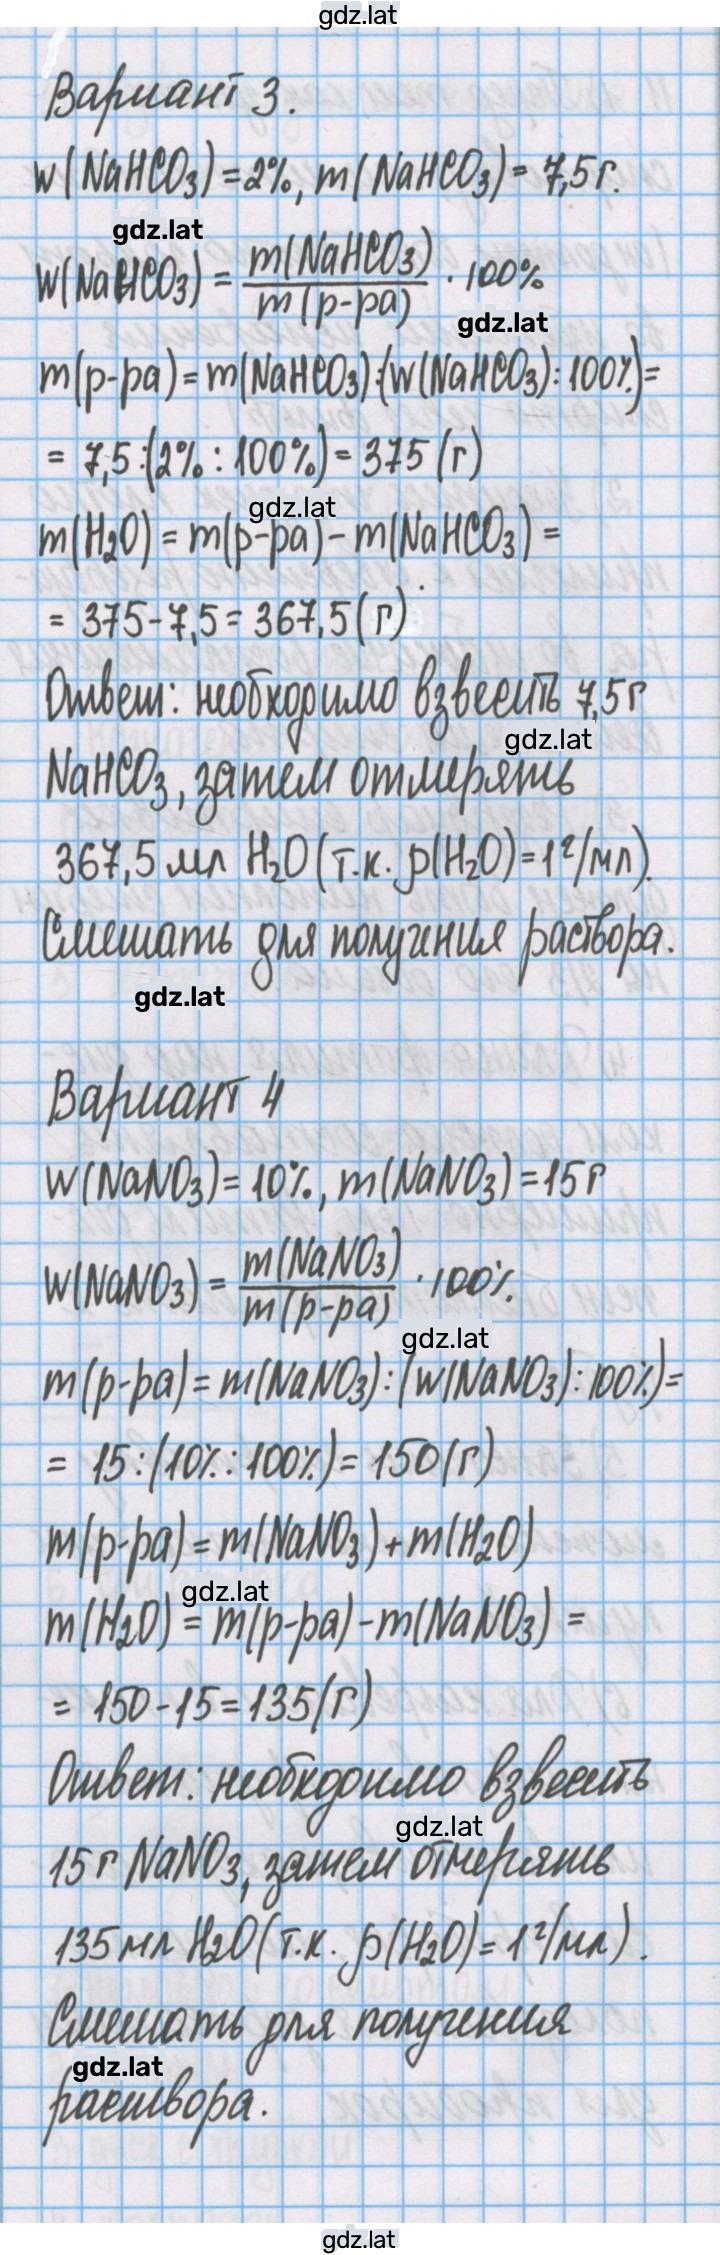 gdz.lat
Вариант 3.
w(NaHCO₃)=2%, m(NaHCO₃)=7,5г.
gdz.lat
w(NaHCO₃) = m(NaHCO₃)/m(р-ра) · 100%
gdz.lat
m(р-ра)=m(NaHCO₃):(w(NaHCO₃):100%)=
= 7,5:(2%:100%)=375(г)
gdz.lat
m(H₂O)=m(р-ра)-m(NaHCO₃)=
= 375-7,5=367,5(г)
Ответ: необходимо взвесить 7,5г
gdz.lat
NaHCO₃, затем отмерять
367,5 мл H₂O (т.к. ρ(H₂O)=1г/мл).
Смешать для получения раствора.
gdz.lat
Вариант 4
w(NaNO₃)=10%, m(NaNO₃)=15г
w(NaNO₃) = m(NaNO₃)/m(р-ра) · 100%
gdz.lat
m(р-ра)=m(NaNO₃):(w(NaNO₃):100%)=
= 15:(10%:100%)=150(г)
m(р-ра)=m(NaNO₃)+m(H₂O)
gdz.lat
m(H₂O)=m(р-ра)-m(NaNO₃)=
= 150-15=135(г)
Ответ: необходимо взвесить
gdz.lat
15г NaNO₃, затем отмерять
135мл H₂O (т.к. ρ(H₂O)=1г/мл).
Смешать для получения
gdz.lat
раствора.
gdz.lat